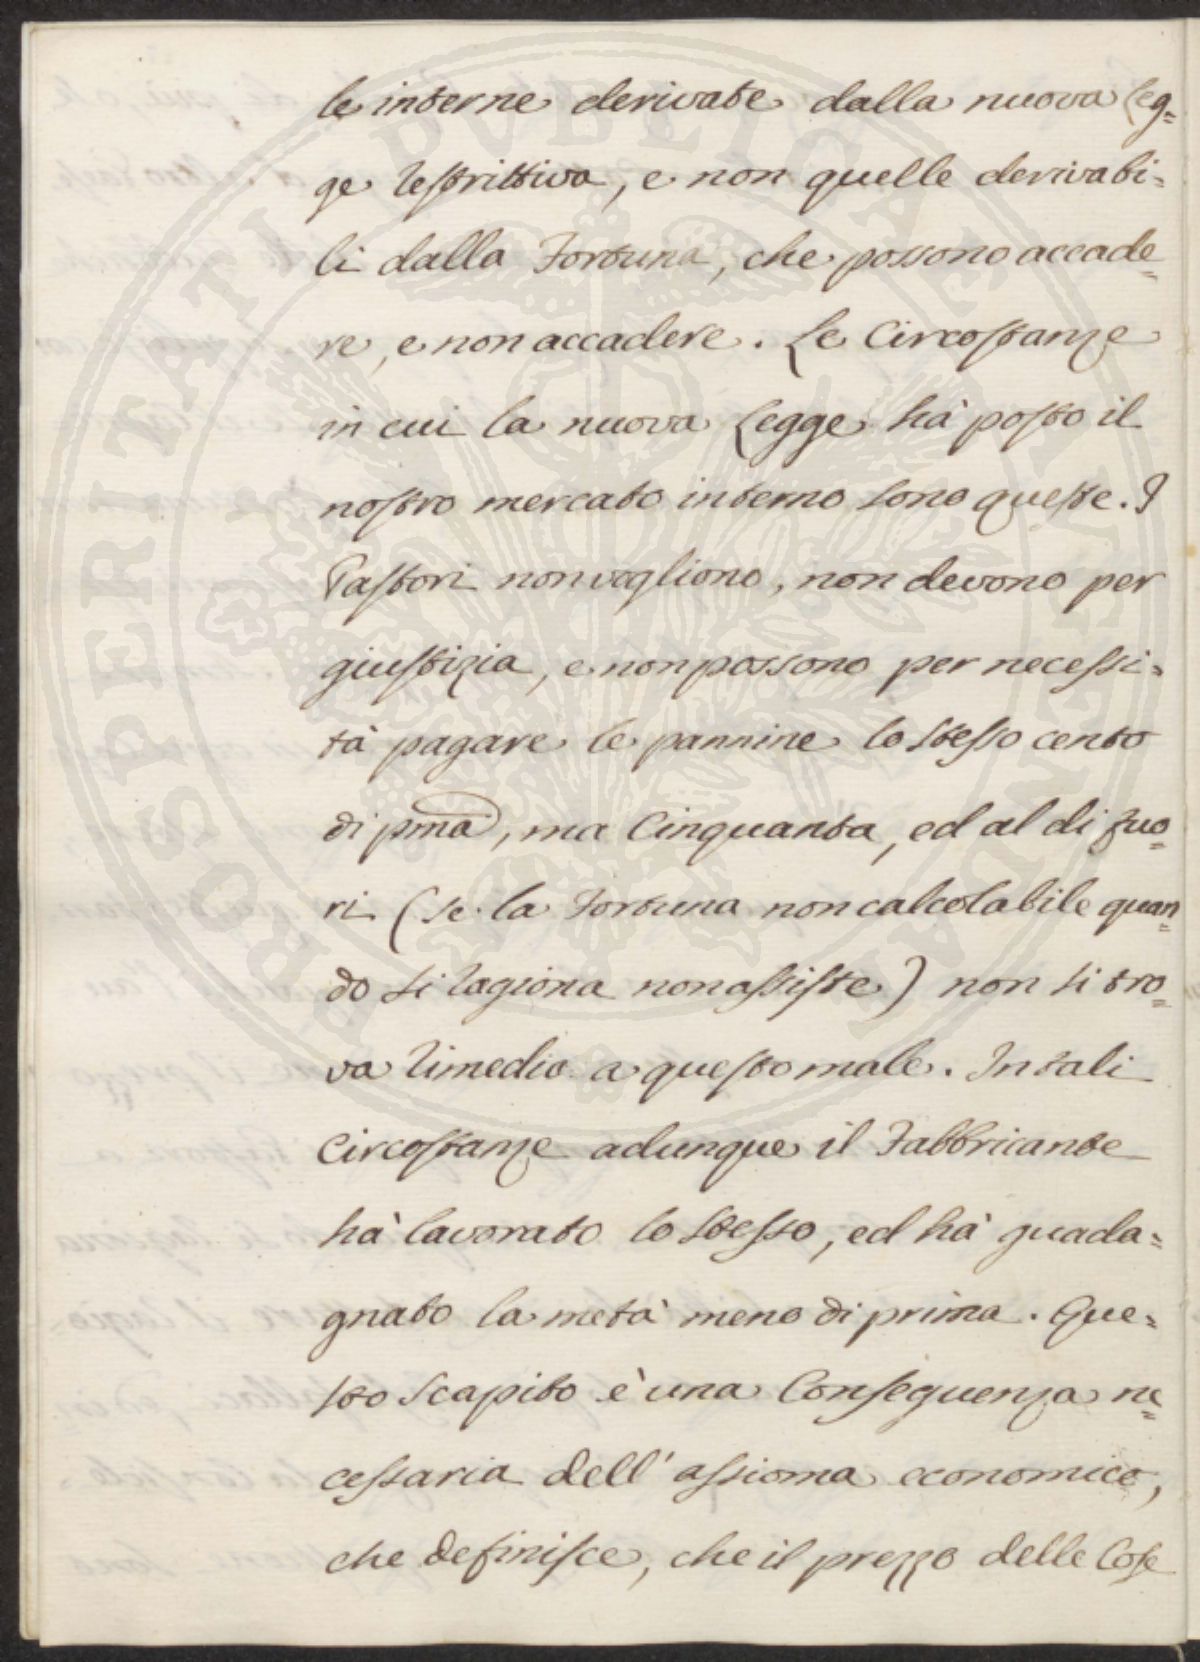 le interne derivate dalla nuova Leg=
ge restrittiva, e non quelle derivabi=
li dalla Fortuna, che possono accade=
re, e non accadere. Le Circostanze
in cui la nuova Legge hà posto il
nostro mercato interno sono queste. I
Pastori non vogliono, non devono per
giustizia, e non possono per necessi=
tà pagare le pannine lo stesso cento
di pma, ma Cinquanta, ed al di fuo=
ri (se la Fortuna non calcolabile quan=
do si ragiona non assiste) non si tro=
va rimedio a questo male. In tali
Circostanze adunque il Fabbricante
hà lavorato lo stesso, ed hà guada=
gnato la metà meno di prima. Que=
sto scapito è una Conseguenza ne=
cessaria dell' assioma economico,
che definisce, che il prezzo delle Cose
PROSPERITATI PVBLICAE AVGENDAE